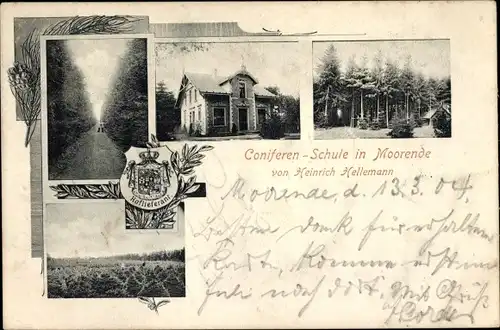 Coniferen-Schule in Moorende
von Heinrich Hellemann
Hoflieferant
Moorende, d. 13.3.04.
Besten Dank für erhaltene
Karte, Komme erst im
Juli nach dort. Mit Gruß